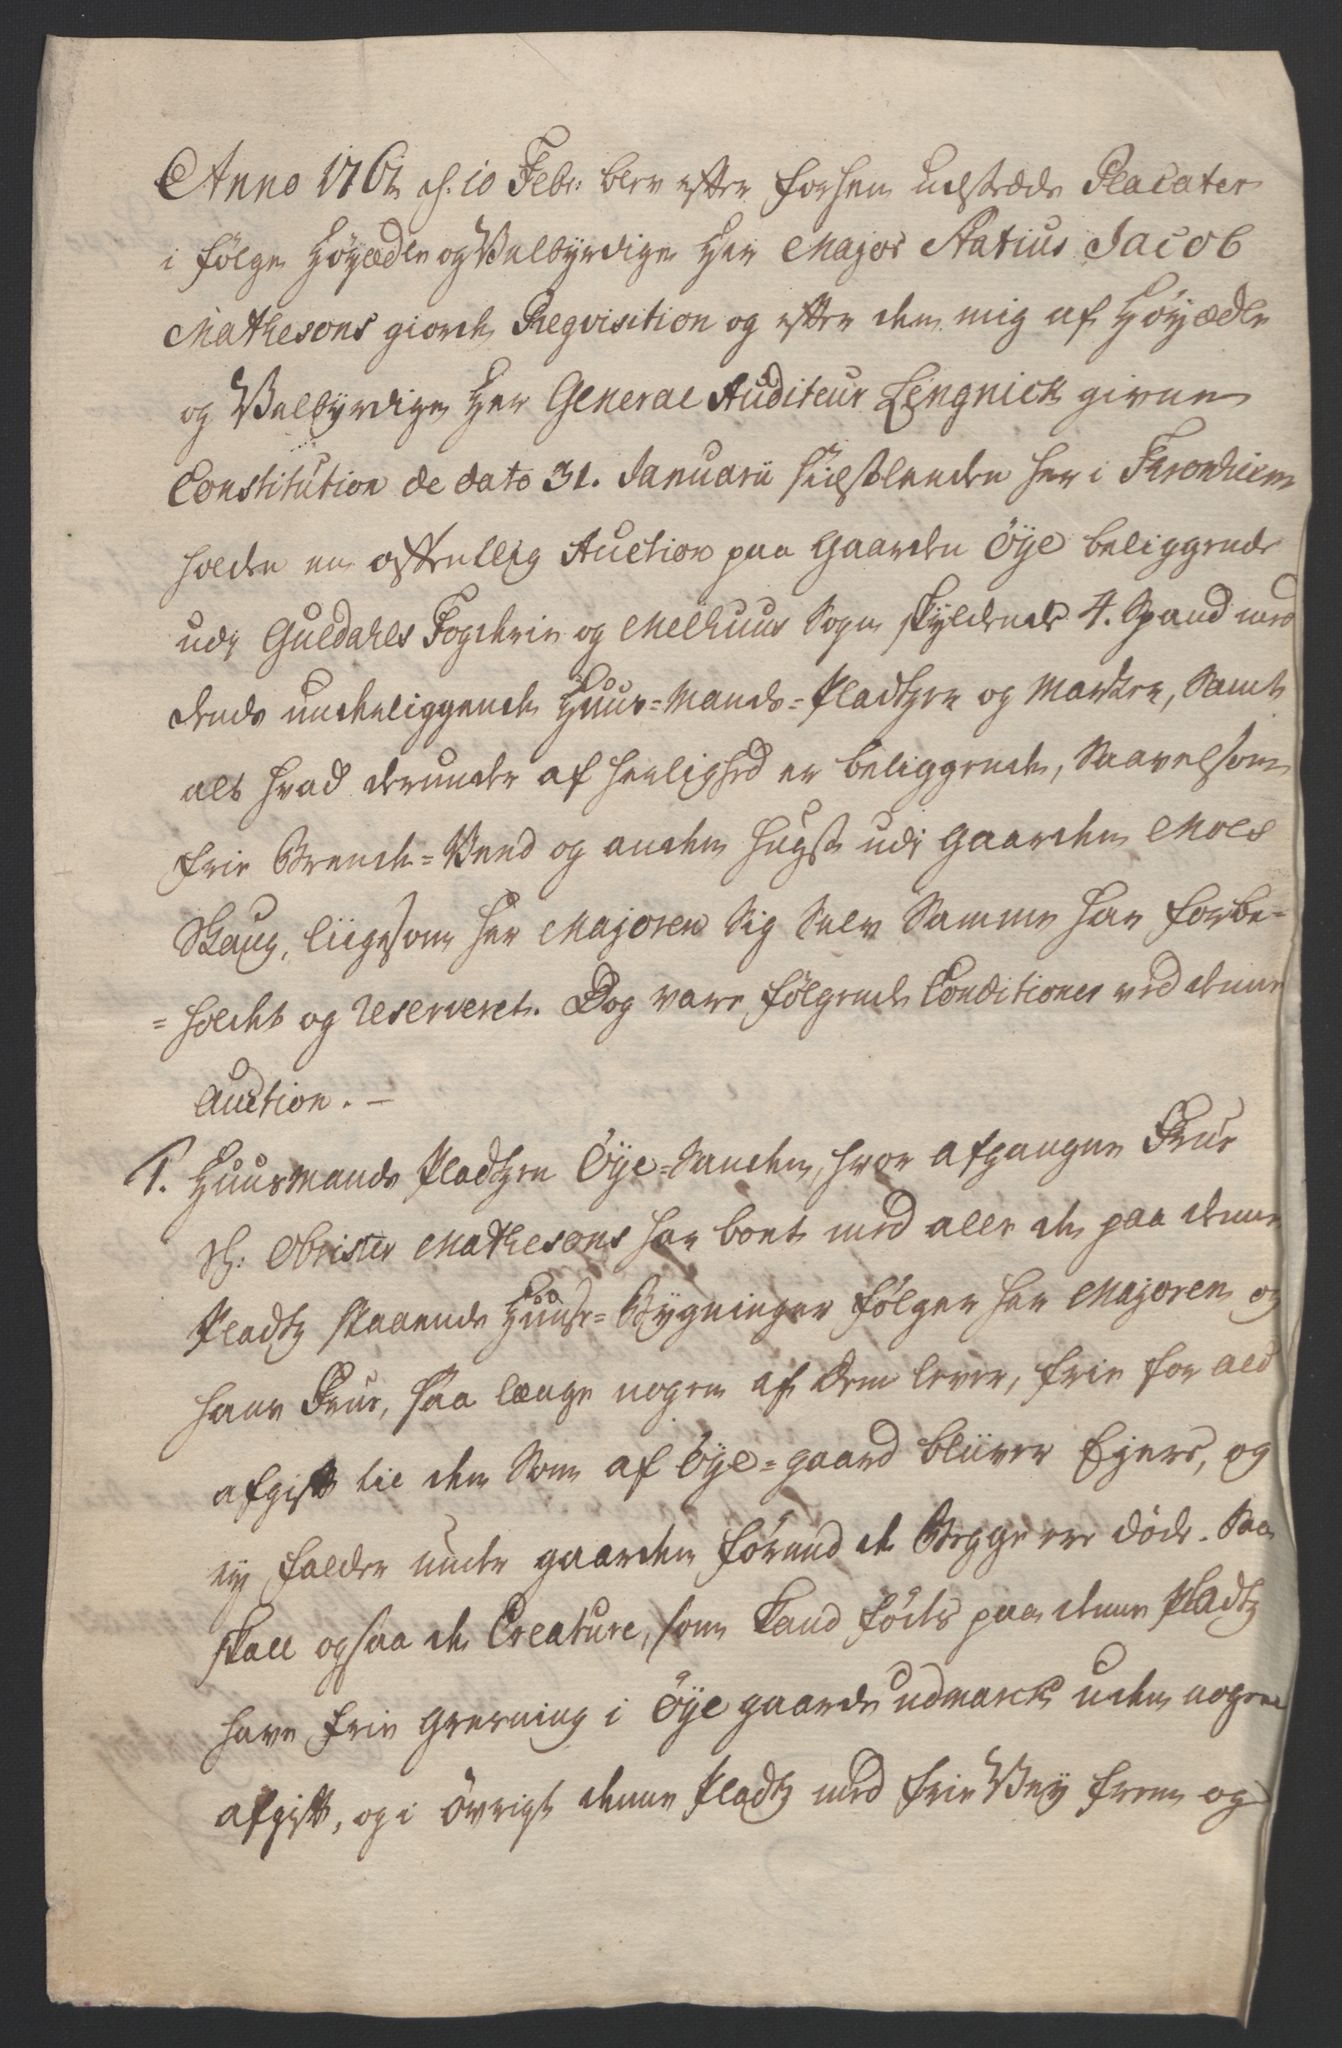 Anno 1762 d. 10 Febr: blev efter forhen udstædde Placater
i følge Høyædle og Velbyrdige Her Major Statius Jacob
Mathesons giorde Reqvisition og efter den mig af Høyædle
og Velbyrdige Her General Auditeur Lengnick givene
Constitution de dato 31. Januarii sidstleeden her i Tronhiem
holden en offentlig Auction paa Gaarden Øye beliggende
udi Guldahls Fogderie og Melhuus Sogn skyldende 4. Spand med
dends underliggende Huus-Mands-Pladtzer og Marker, samt
alt hvad derunder af herlighed er beliggende, saavelsom
frie Brende-Veed og anden hugst udi Gaarden Moes
Skaug, liigesom Her Majoren sig selv samme har forbe-
-holdt og reserveret. Dog vare følgende Conditioner ved denne
Auction. —
1. Huusmands Pladtzen Øye-Sanden, hvor afgangne Frue
Sl: Obrister Mathesons har boet med alle de paa denne
Pladtz staaende Huuse-Bygninger følger Her Majoren og
hans Frue, saa længe nogen af dem lever, frie for ald
afgift til den som af Øye-gaard bliiver Ejere, og
ey falder under gaarden førend de begge ere døde. Saa
skall ogsaa de Creature, som kand fødes paa denne Pladtz
have frie græsning i Øye gaards udmarck uden nogen
afgift, og i øvrigt denne Pladtz med frie Vey frem og